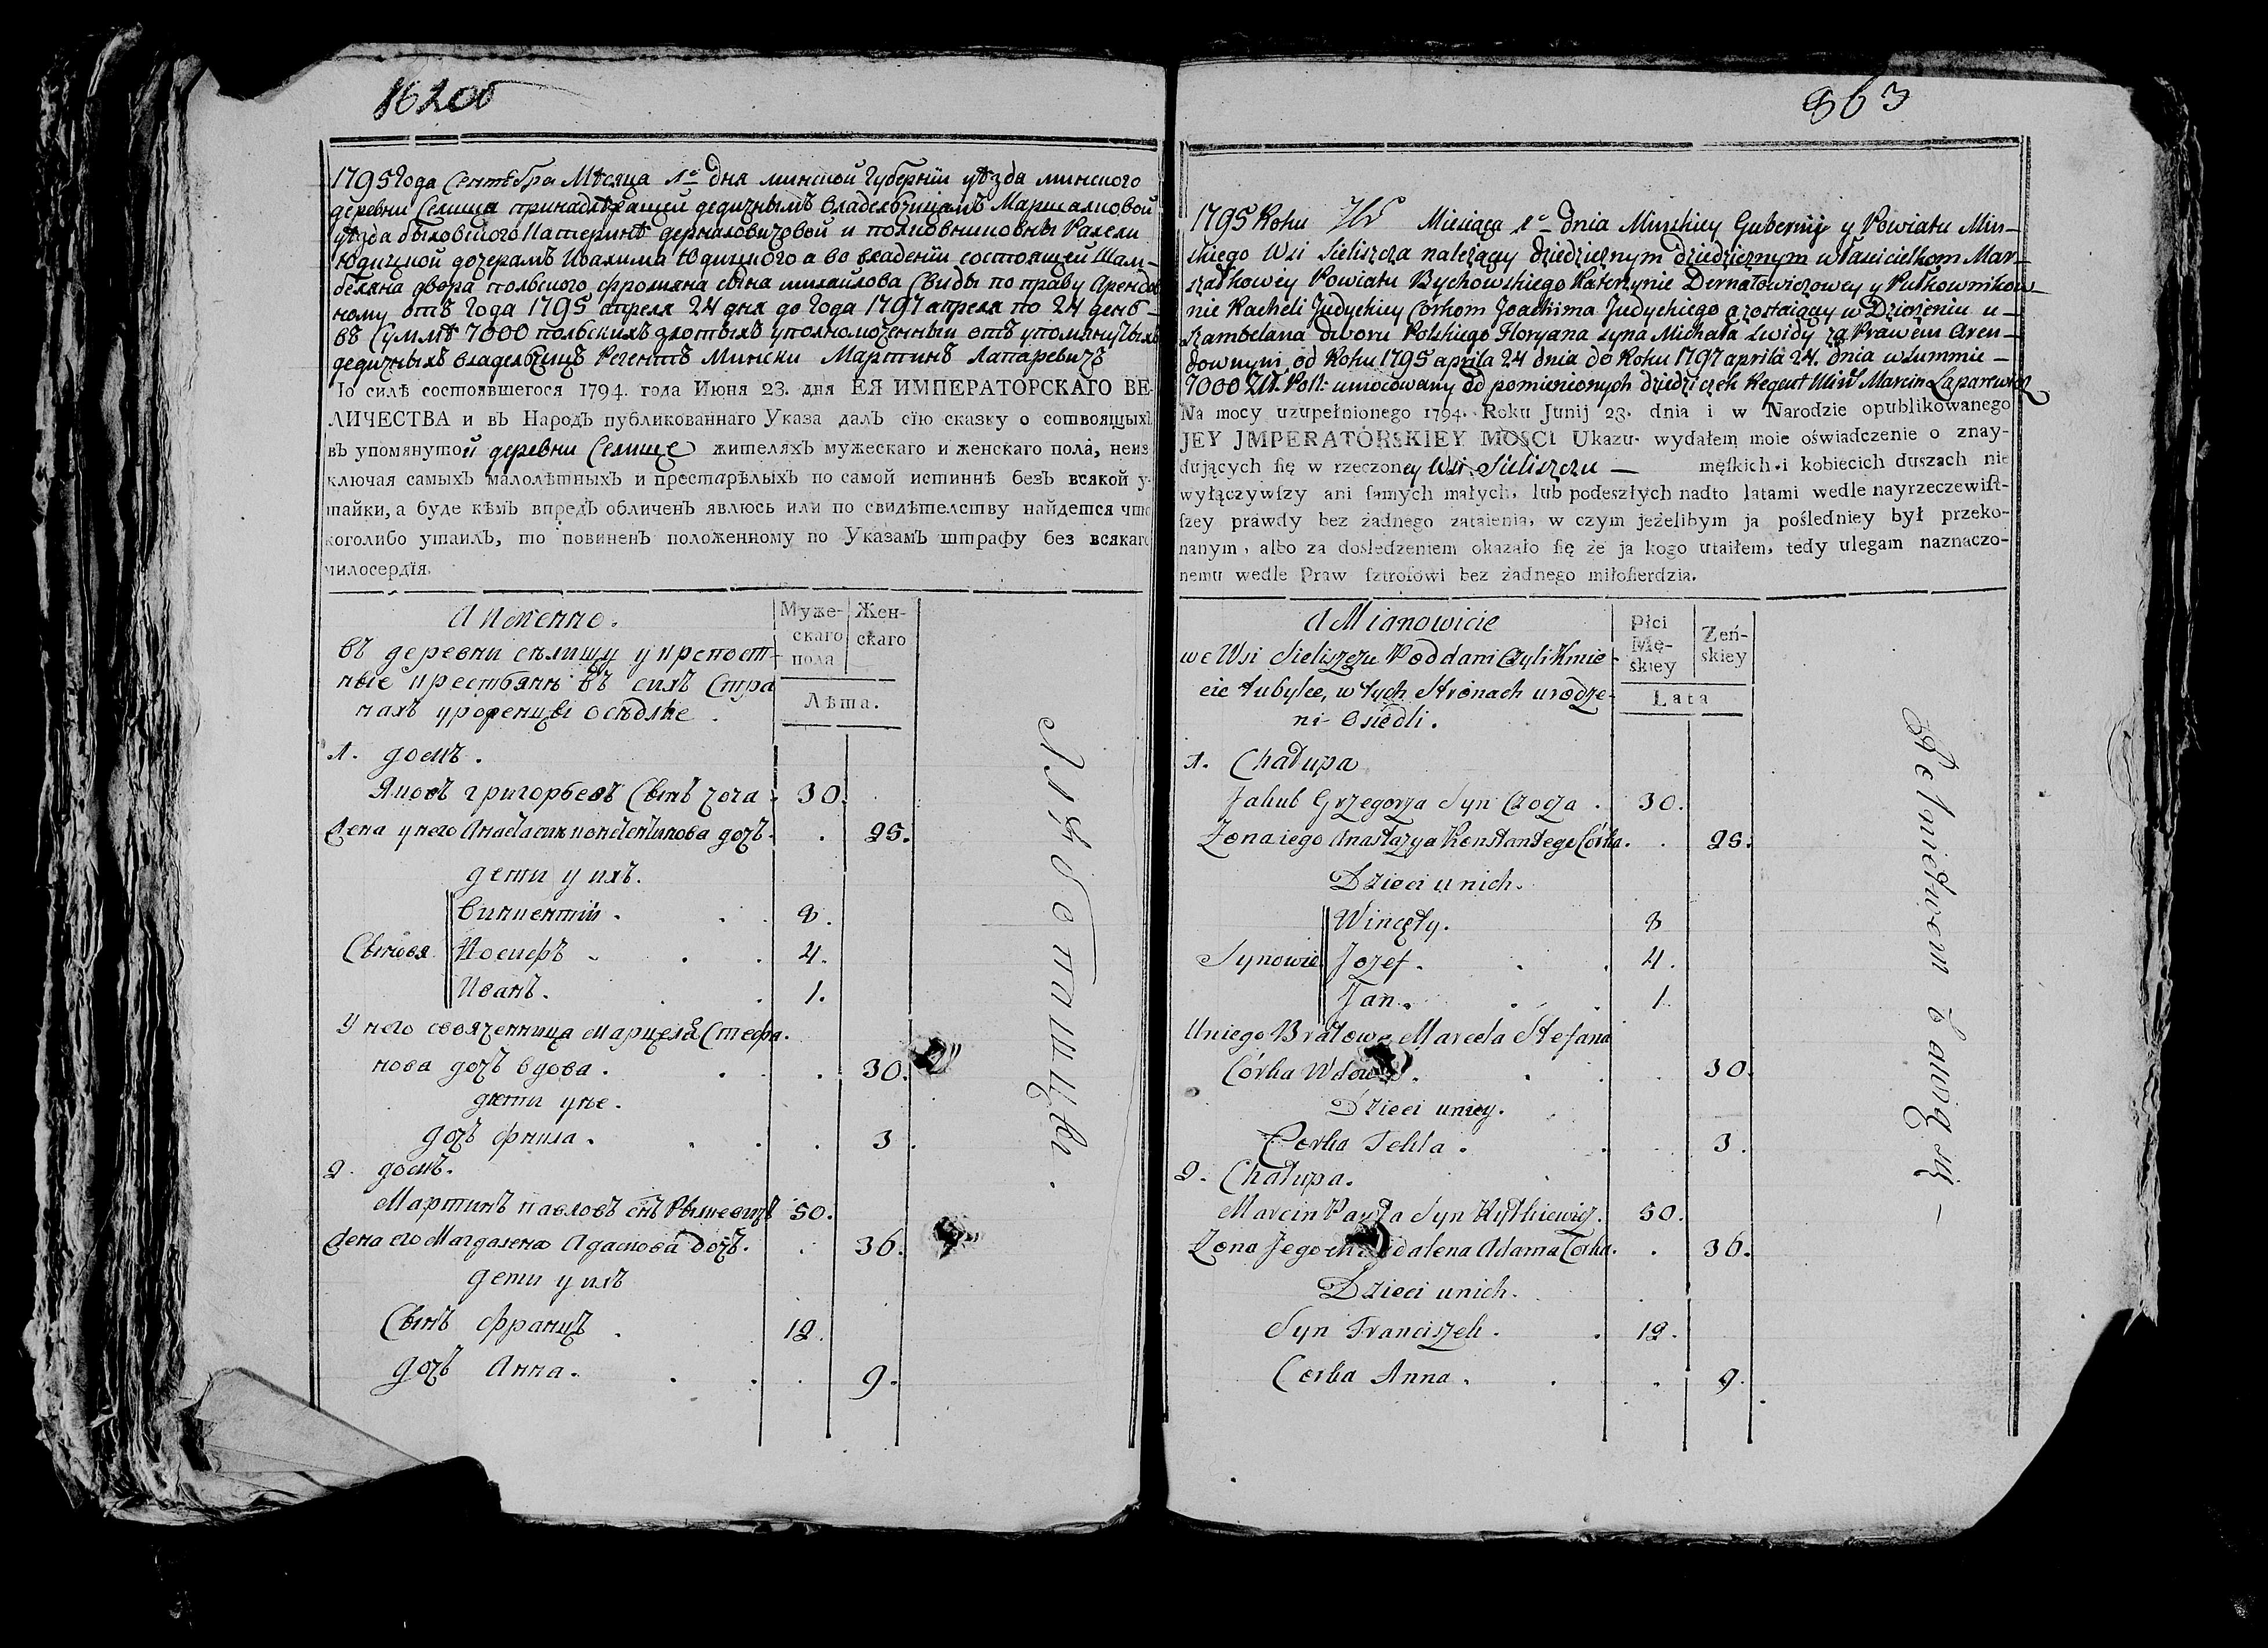 16200
1795 Года Сентебра Месяца 1º Дня минской Губернїи уѣзда минского
деревни Селища принадлежащей дедичнымъ владелъчицамъ Маршалковой
уѣзда быховского Катеринѣ дерналовичовой и полковниковны Рахели
Юдицкой дочерамъ Иоахима Юдицкого а во владенїи состоящей Шам-
беляна двора польского Флорияна сына михайлова Свиды по праву Арендов
ному отъ Года 1795 апреля 24 дня до Года 1797 апреля по 24 день
въ Суммѣ 7000 польскихъ злотыхъ уполномоченный отъ упомянутыхъ
дедичныхъ владельчицъ Регентъ Мински Мартинъ Лапаревичъ
По силѣ состоявшегося 1794. года Июня 23. дня ЕЯ ИМПЕРАТОРСКАГО ВЕ-
ЛИЧЕСТВА и въ Народъ публикованнаго Указа далъ сїю сказку о сотвоящыхъ
въ упомянутой деревни Селище жителяхъ мужескаго и женскаго пола, неиз
ключая самыхъ малолѣтныхъ и престарѣлыхъ по самой истиннѣ безъ всякой у-
тайки, а буде кѣмъ впредъ обличенъ явлюсь или по свидѣтелству найдется что
коголибо утаилъ, то повиненъ положенному по Указамъ штрафу без всякаго
милосердїя.
А имѣнно.
Муже-
скаго
пола
Жен-
скаго
Лѣта.
въ деревни селищу крепост-
ные крестьяне въ сихъ Стра
нахъ уроженцы оседлые.
1. домъ.
Яковъ григорьевъ Сынъ чоча. 30.
Жена у него Анастасия константинова дочъ. 25.
дети у ихъ.
Сыновя
Викентий. 8.
Иосифъ. 4.
Иванъ. 1.
У него свояченница марцеля Стефа.
нова дочъ вдова. 30.
дети у ее.
дочъ фекла. 3.
2. домъ.
Мартинъ павловъ снъ Рыткевичъ 50.
Жена его Магдалена Адамова дочъ. 36.
дети у ихъ
Сынъ Францъ. 12.
дочъ Анна. 9.
963
1795 Roku Miesiąca 1º dnia Minskiey Gubernij y Powiatu Min-
skiego Wsi Sieliszcza należący dziedzicznym dziedzicznym właścicielkom Mar-
szałkowey Powiatu Bychowskiego Katerzynie Dernałowiczowey y Pułkownikow-
nie Racheli Judyckiey Corkom Joachima Judyckiego a zostaiący w Dzierżeniu u-
Szambelana dworu Polskiego Floryana syna Michała Swidy za Prawem Aren-
downym, od Roku 1795 aprila 24 dnia do Roku 1797 aprila 24. dnia w summie -
7000 Zł. Pols: umocowany od pomienionych dziedziczek Regent Minl Marcin Łaparewicz
Na mocy uzupełnionego 1794. Roku Junij 23. dnia i w Narodzie opublikowanego
JEY JMPERATORSKIEY MOSCI Ukazu. wydałem moie oświadczenie o znay-
dujących ſię w rzeczoney Wsi Sieliszczu męſkich i kobiecich duszach nie
wyłączywſzy ani ſamych małych, lub podeszłych nadto latami wedle nayrzeczewiſt-
ſzey prawdy bez żadnego zataienia, w czym jeżelibym ja poſledniey był przeko-
nanym, albo za dosledzeniem okazało ſię że ja kogo utaiłem, tedy ulegam naznaczo-
nemu wedle Praw ſztrofowi bez żadnego miłoſierdzia.
A Mianowicie
Płci
Mę-
skiey
Zeń-
skiey
Lata
we Wsi Sieliszczu Poddani Czyli Kmie-
cie tubylce, w tych Stronach urodze-
ni Osiedli.
1. Chałupa
Jakub Grzegorza Syn Czocza. 30.
Zona iego Anastazya Konstantego Córka. 25.
Dzieci u nich.
Synowie
Wincęty. 8
Jozef. 4.
Jan. 1.
U niego Bratowa Marcela Stefana
Córka Wdowa. 30.
Dzieci u niey.
Corka Tekla. 3.
2. Chałupa.
Marcin Pawła Syn Rytkiewicz. 50.
Zona Jego Magdalena Adama Corka. 36.
Dzieci u nich.
Syn Franciszek. 12.
Corka Anna. 9.